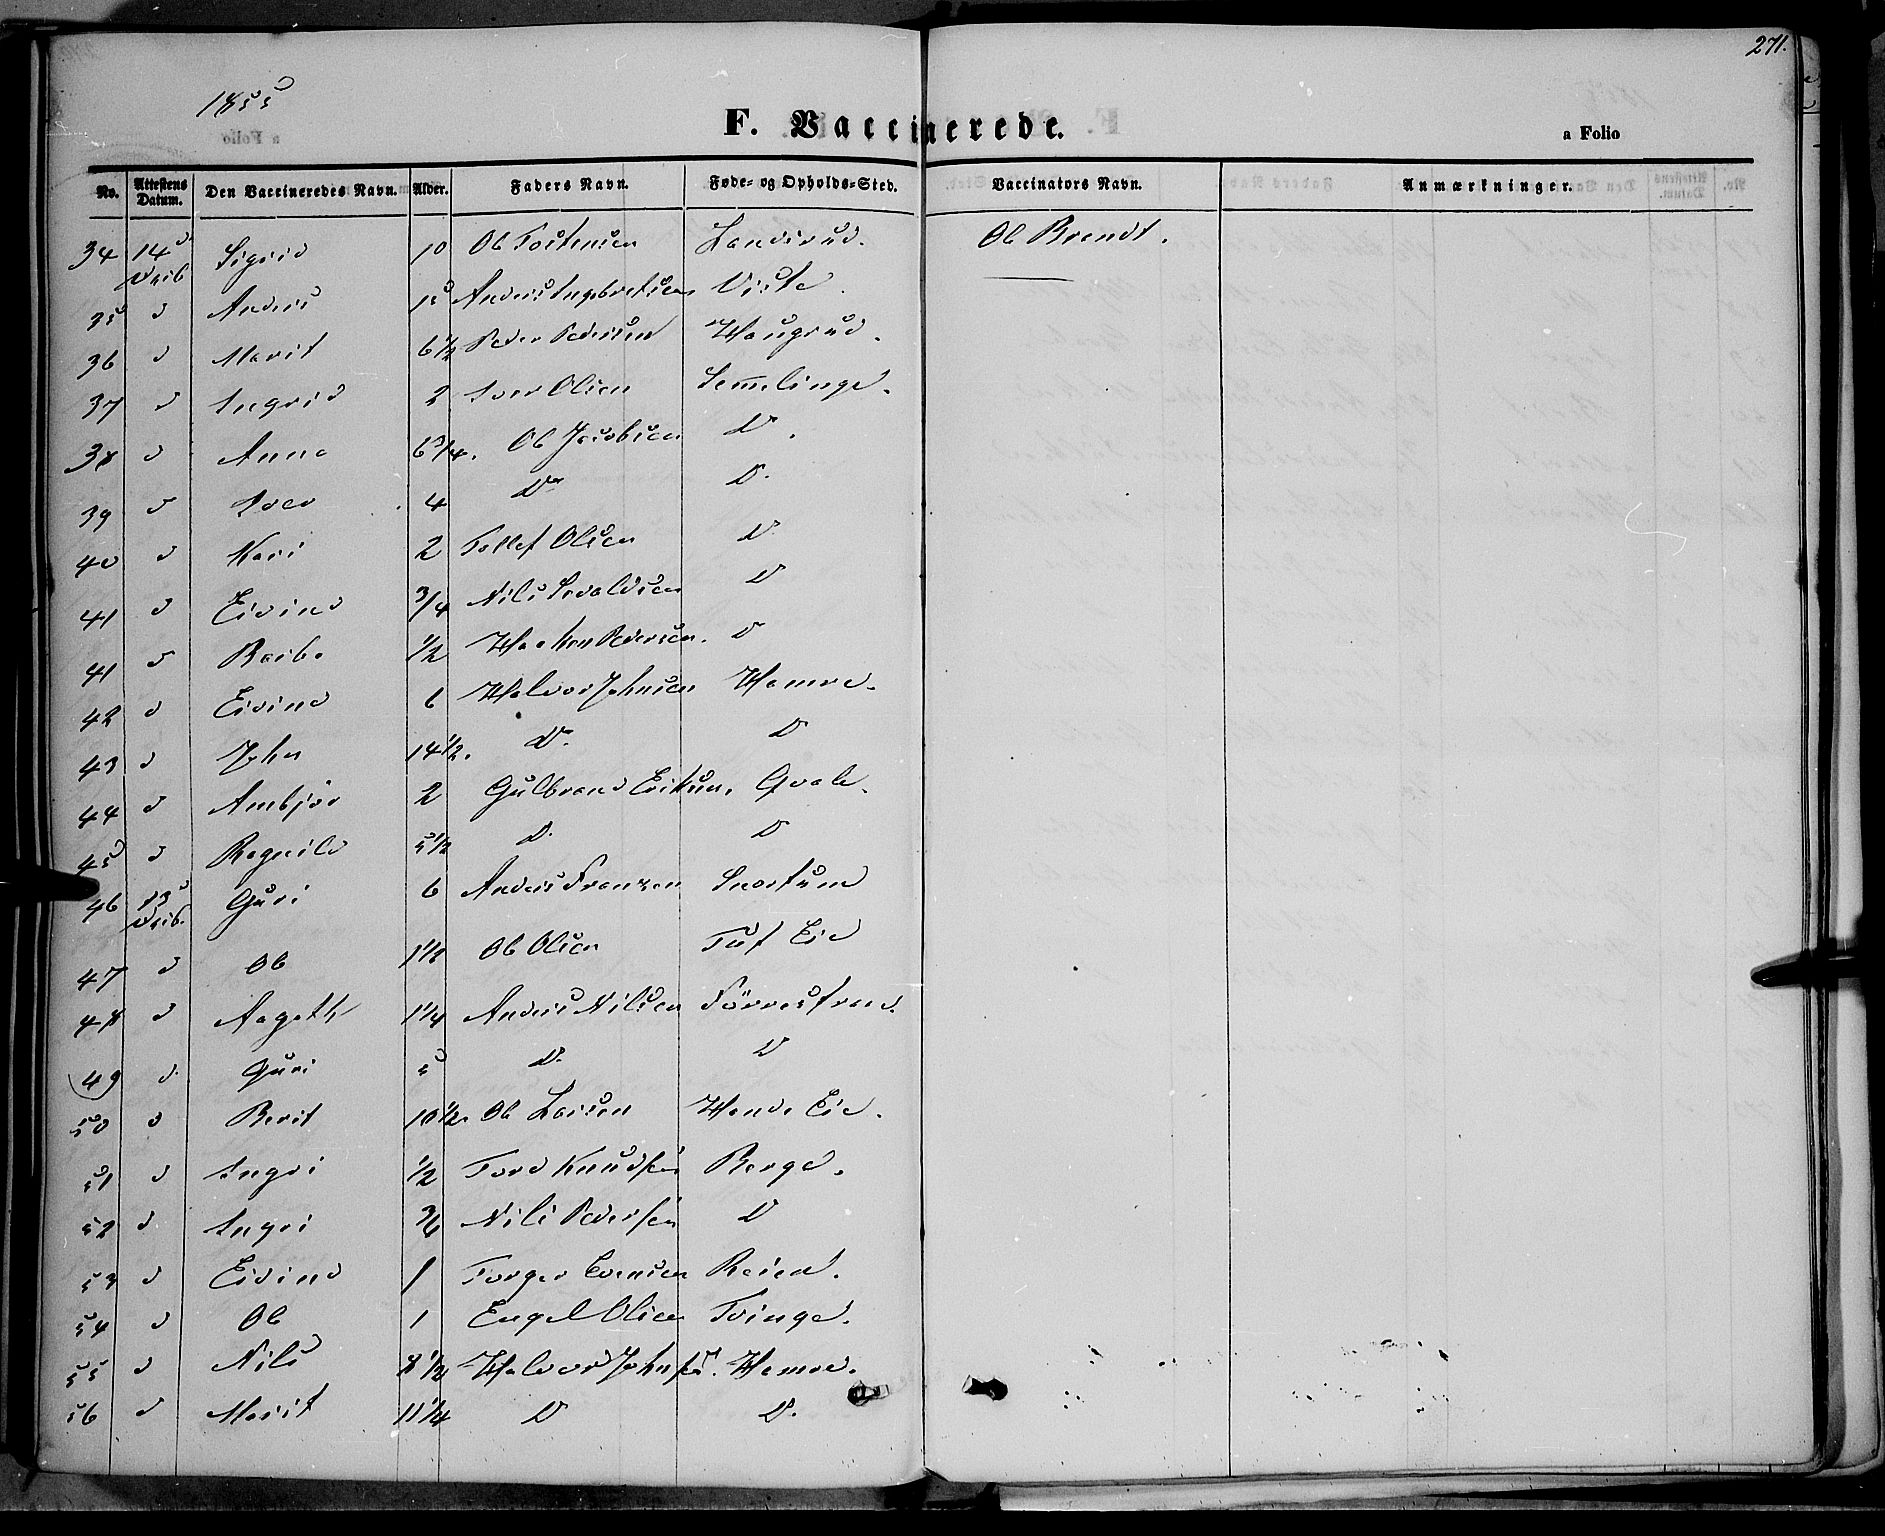 271.
1855
F. Vaccinerede.
a Folio
No. Attestens Datum. Den Vaccineredes Navn. Alder. Faders Navn. Føde- og Opholds-Sted. Vaccinators Navn. Anmærkninger.
34 14 Sigrid 10 Ole Tostensen Ole Brandt.
35 d Anders 15 Anders Ingebretsen Viste
36 d Marit 6 1/2 Peder Pedersen Haugrud.
37 d Ingrid 2 Iver Olsen Semelinge.
38 d Anne 6 3/4. Ole Jacobsen D.
39 d Iver 4 Do D.
40 d Kari 2 Tollef Olsen D
41 d Eivind 3/4 Nils D
41 d 1/2 Haaken Pedersen. D
42 d Eivind 6 Halvor Johnsen Hamre.
43 d John 14 1/2. D. D
44 d Ambjør 2 Gulbrand Eriksen. Qvale.
45 d Ragnild 5 1/2 D. D
46 Guri 6 Anders Fransen Snortum
47 d Ole 1 1/2 Ole Olsen Eie
48 d Aagoth 1 1/4 Anders Nilsen
49 d. Guri 5 D. D
50 d Berit 10 1/2. Ole Larsen Hande Eie.
51 d Ingri 1/2 Tord Knudsen Berge.
52 d Ingri Nils Pedersen D
53 d Eivind 1 Torger Evensen Reien.
54 d Ole 1 Engel Olsen Tvinge.
55 d Nils 8 1/2 Halvor Johnsen. Hamre.
56 d Marit 11 1/4 D D.